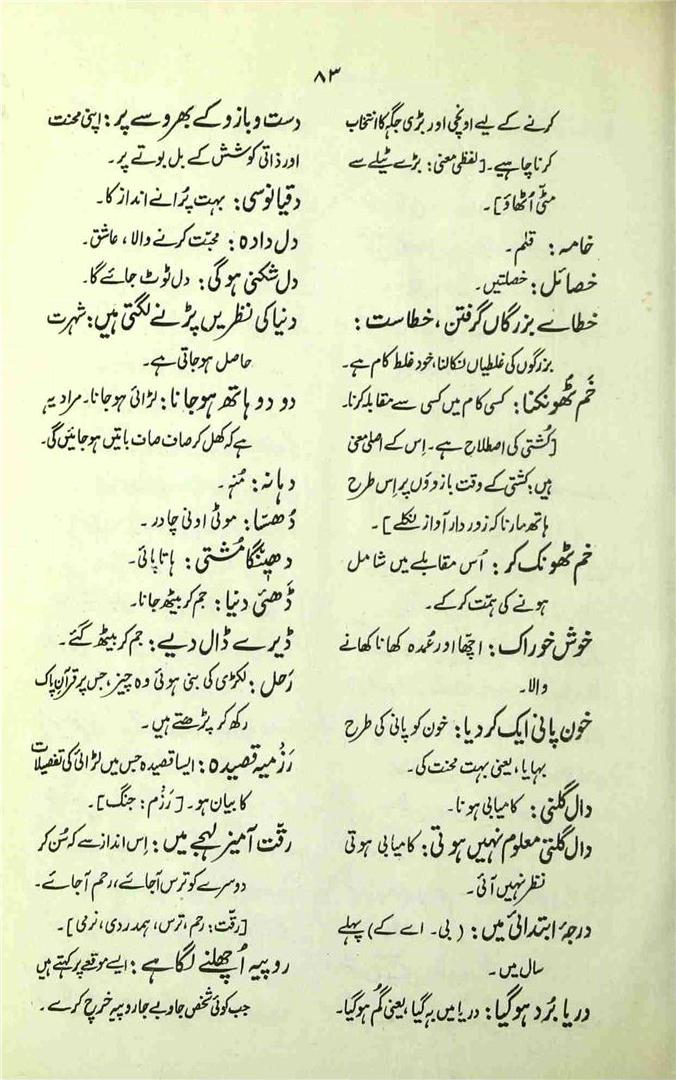 ۸۳
کرنے کے لیے اونچی اور بڑی جگہ کا انتخاب
کرنا چاہیے۔ [لفظی معنی: بڑے ٹیلے سے
مٹّی اُٹھاؤ]۔
خامہ: قلم۔
خصائل: خصلتیں۔
خطاے بزرگاں گرفتن، خطاست:
بزرگوں کی غلطیاں نکالنا، خود غلط کام ہے۔
خَم ٹھونکنا: کسی کام میں کسی سے مقابلہ کرنا۔
[کُشتی کی اصطلاح ہے۔ اِس کے اصلی معنی
ہیں: کشتی کے وقت بازوؤں پر اِس طرح
ہاتھ مارنا کہ زور دار آواز نکلے]۔
خم ٹھونک کر: اُس مقابلے میں شامل
ہونے کی ہمّت کر کے۔
خوش خوراک: اچھا اور عُمدہ کھانا کھانے
والا۔
خون پانی ایک کر دیا: خون کو پانی کی طرح
بہایا، یعنی بہت محنت کی۔
دال گلنی: کامیابی ہونا۔
دال گلتی معلوم نہیں ہوتی: کامیابی ہوتی
نظر نہیں آئی۔
درجۂ ابتدائی میں: (بی۔ اے کے) پہلے
سال میں۔
دریا بُرد ہو گیا: دریا میں بہ گیا، یعنی گُم ہو گیا۔
دست و بازو کے بھروسے پر: اپنی محنت
اور ذاتی کوشش کے بل بوتے پر۔
دقیانوسی: بہت پُرانے انداز کا۔
دل دادہ: محبّت کرنے والا، عاشق۔
دل شکنی ہوگی: دل ٹوٹ جائے گا۔
دنیا کی نظریں پڑنے لگتی ہیں: شہرت
حاصل ہو جاتی ہے۔
دو دو ہاتھ ہو جانا: لڑائی ہو جانا۔ مراد یہ
ہے کہ کھل کر صاف صاف باتیں ہو جائیں گی۔
دہانہ: مُنہ۔
دُھسّا: موٹی اونی چادر۔
دھینگا مُشتی: ہاتا پائی۔
ڈَھئی دنیا: جم کر بیٹھ جانا۔
ڈیرے ڈال دیے: جم کر بیٹھ گئے۔
رَحل: لکڑی کی بنی ہوئی وہ چیز، جس پر قرآنِ پاک
رکھ کر پڑھتے ہیں۔
رَزمیہ قصیدہ: ایسا قصیدہ جس میں لڑائی کی تفصیلات
کا بیان ہو۔ [رَزْم: جنگ]۔
رقّت آمیز لہجے میں: اِس انداز سے کہ سُن کر
دوسرے کو ترس آجائے، رحم آجائے۔
[رقّت: رحم، ترس، ہمدردی، نرمی]۔
روپیہ اُچھلنے لگا ہے: ایسے موقعے پر کہتے ہیں
جب کوئی شخص جاوبے جا روپیہ خرچ کرے۔